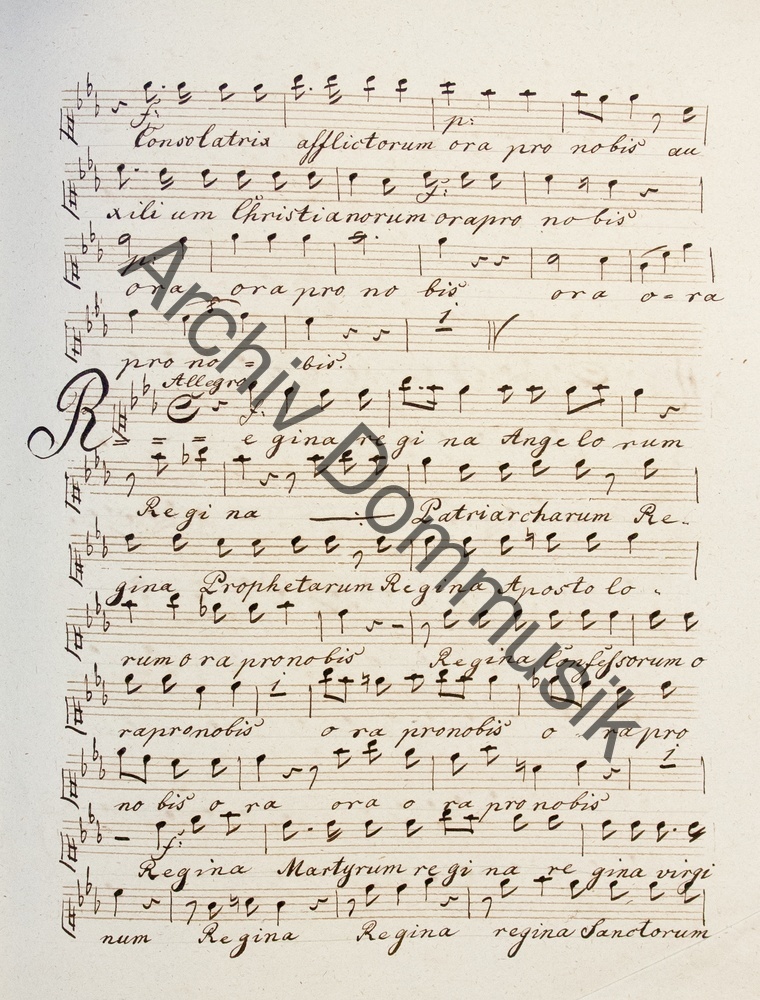 f: p:
Consolatrix afflictorum ora pro nobis au
f:
xili um Christianorum orapro no bis
p:
ora ora pro no bis ora o = ra
1
pro no = bis.
Allegro
f:
R = = = e gina re gi na Ange lo rum
Regi na Patriarcharum Re..
gina Prophetarum Regina Aposto lo -
rum o ra pronobis Regina Confessorum o
1
rapronobis o ra pronobis o ra pro
1
no bis o ra ora o ra pro nobis
f:
Regina Martyrum regi na re gina virgi
num Regina Regina regina Sanctorum
Archiv Dommusik